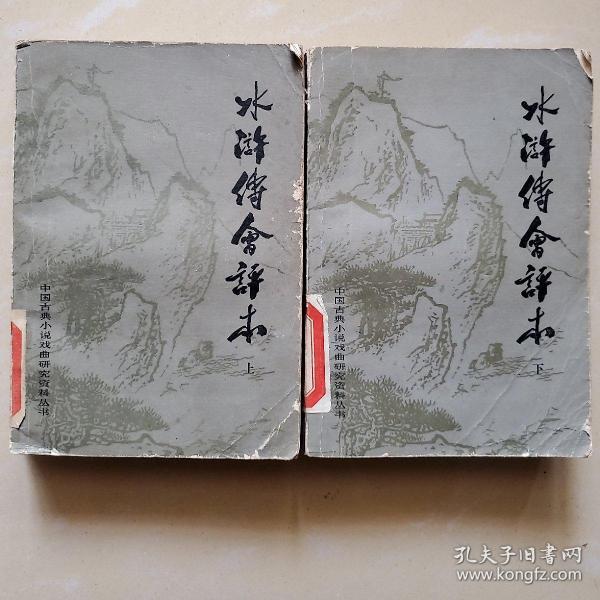 水滸傳會評本
上
中国古典小说戏曲研究资料丛书
水滸傳會評本
下
中国古典小说戏曲研究资料丛书
孔夫子旧书网
www.kongfz.com